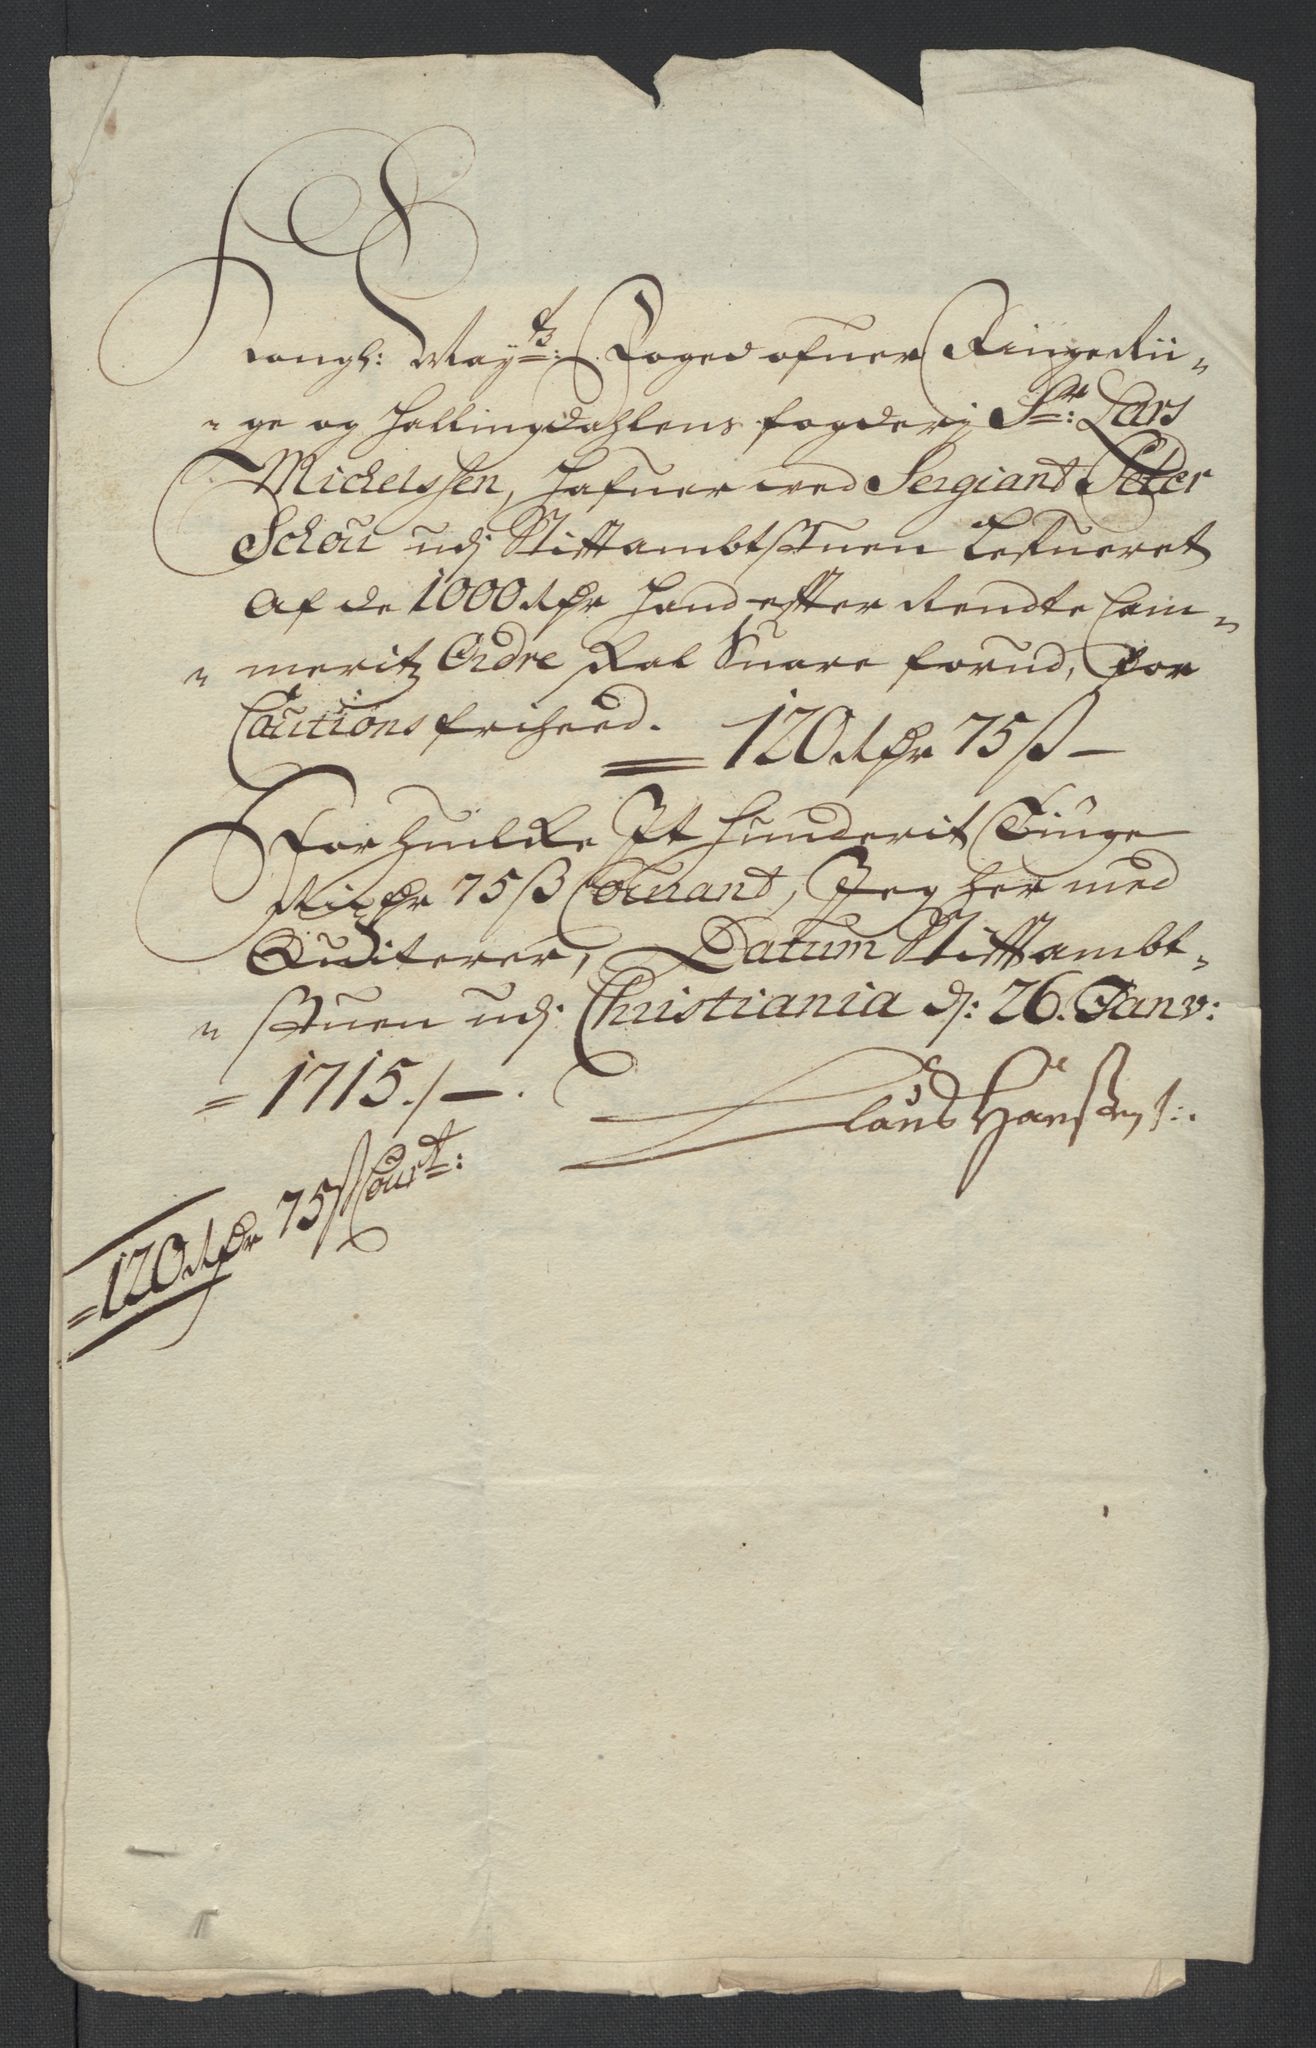 Kongl: Mayts: Foged ofuer Ringe Rii„
„ge og Hallingdahlens fogderj Sr: Lars
Michelssen, Hafuer ved Sergiant Peter
Schou udj Stiftambtstuen Lefueret
Af de 1000 Rdr hand efter Rendte Cam„
„meritz Ordre skal Suare forud, for
Cautions friheed. = 120 Rdr 75 ß –
For huilcke Et hunderit Tiuge
Rixdr 75 ß Courant, Jeg her med
Quiterer, Datum Stiftambt„
„stuen udj Christiania d: 26. Janv:
= 1715. /–.
Claus Hansen
= 120 Rdr 75 ß Court: